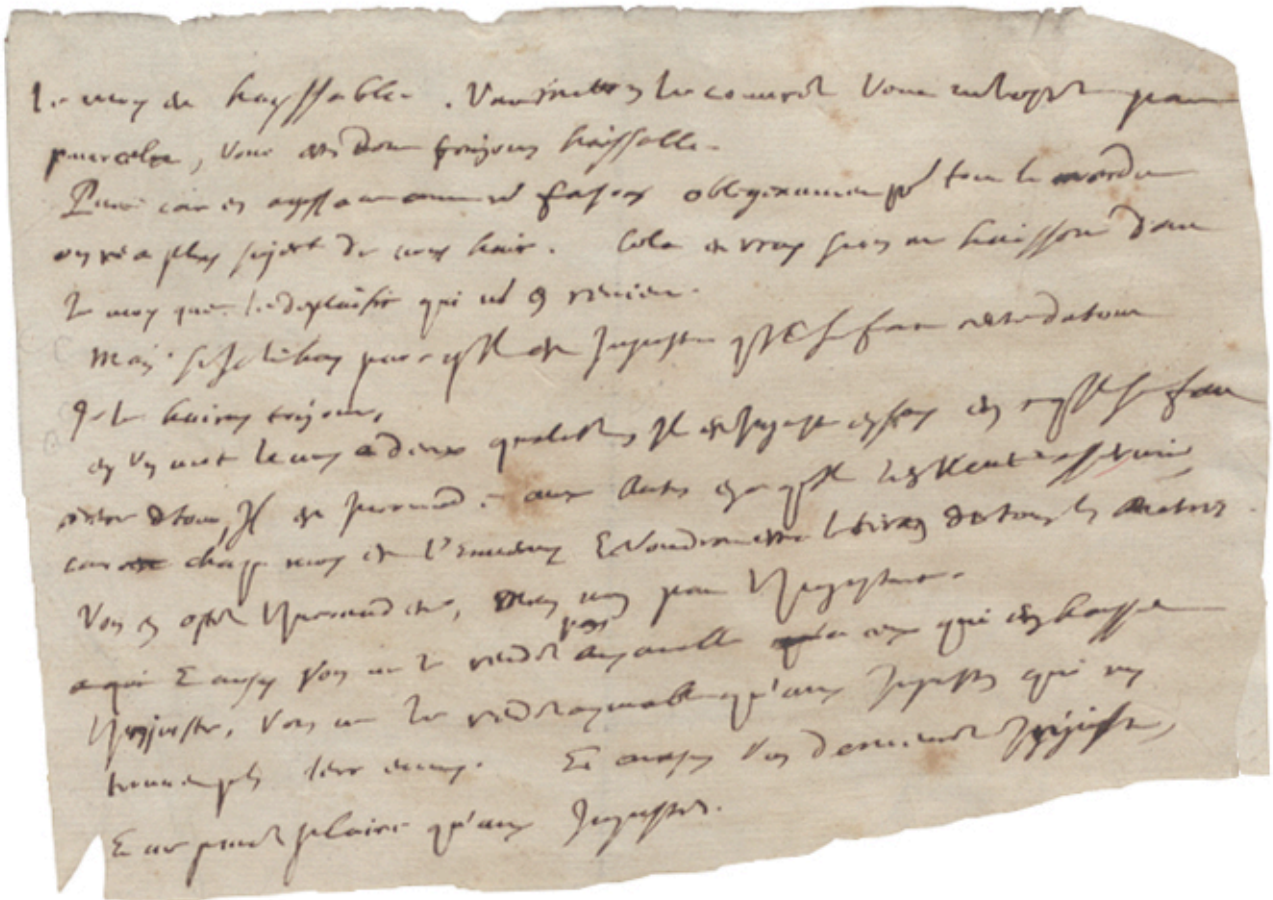 Le moy est hayssable. Vous Miton le couvrez vous ne l'ostez point
pour cela, vous estes donc toujours haissable.
Point car en agissant comme nous faisons obligeamment pour tout le monde
on n'a plus sujet de nous hair. Cela est vray si on ne haissoit dans
le moy que le deplaisir qui nous en revient.
Mais si je le hay parce qu'il est injuste qu'il se fait centre de tout
je le hairay toujours.
En un mot le moy a deux qualitez il est injuste en soy en ce qu'il se fait
centre de tout, Il est incommode aux autres en ce qu'il les veut asservir,
car chaque moy est l'ennemy & voudroit estre le tiran de tous les autres.
Vous en ostez l'incommodité, mais non pas l'injustice.
& ainsy vous ne le rendez pas aymable a ceux qui en haissent
l'injustice, vous ne le rendez aymable qu'aux injustes qui n'y
trouvent plus leur ennemy. Et ainsy vous demeurez injuste,
& ne pouvez plaire qu'aux injustes.